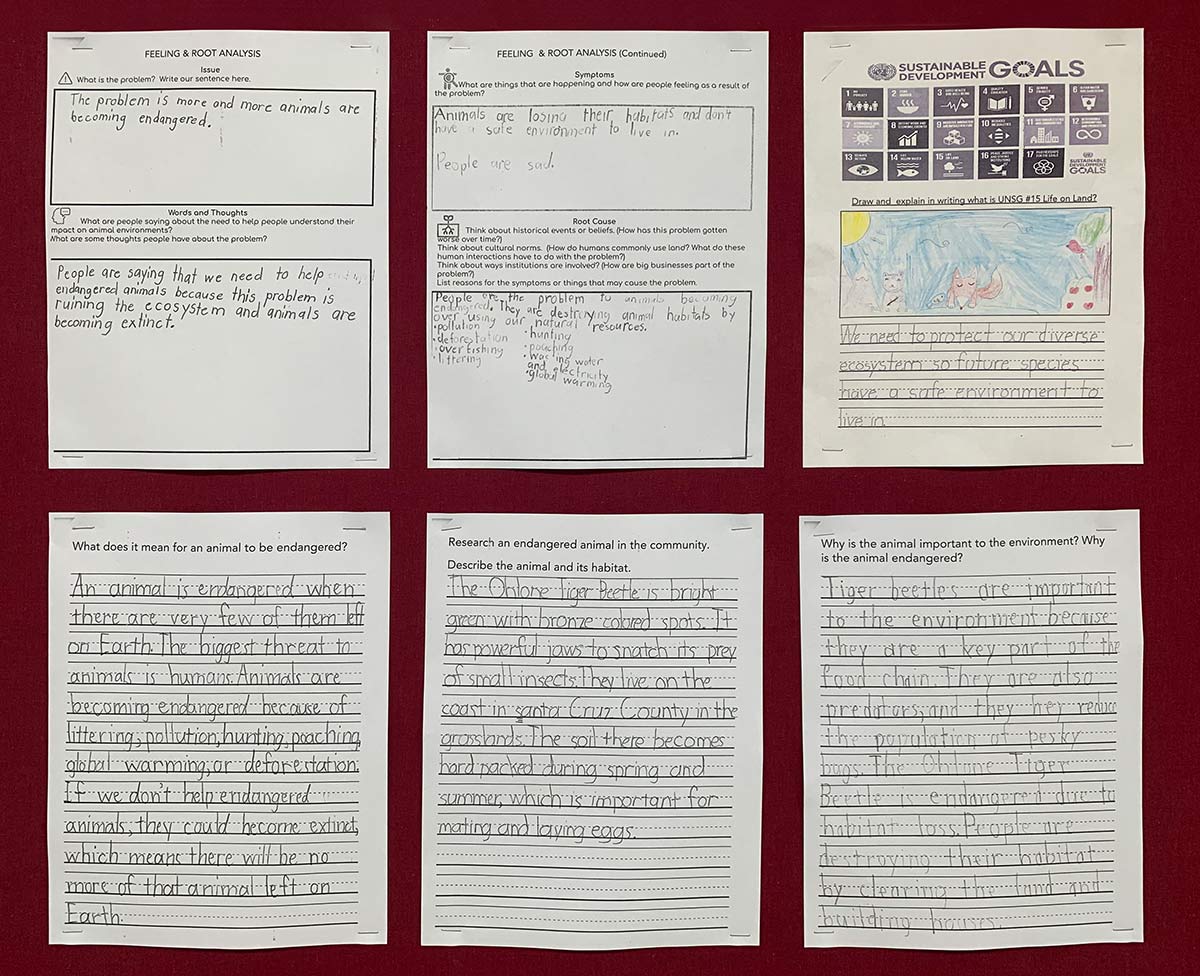 FEELING & ROOT ANALYSIS
Issue
What is the problem? Write our sentence here.
The problem is more and more animals are
becoming endangered.
Words and Thoughts
What are people saying about the need to help people understand their
mpact on animal environments?
What are some thoughts people have about the problem?
People are saying that we need to help
endangered animals because this problem is
ruining the ecosystem and animals are
becoming extinct.
FEELING & ROOT ANALYSIS (Continued)
Symptoms
What are things that are happening and how are people feeling as a result of
the problem?
Animals are losing their habitats and don't
have a safe environment to live in.
People are sad.
Root Cause
Think about historical events or beliefs. (How has this problem gotten
worse over time?)
Think about cultural norms. (How do humans commonly use land? What do these
human interactions have to do with the problem?)
Think about ways institutions are involved? (How are big businesses part of the
problem?)
List reasons for the symptoms or things that may cause the problem.
People are the problem to animals becoming
endangered. They are destroying animal habitats by
over using our natural resources.
• pollution
• deforestation
• over fishing
• littering
• hunting
• poaching
• wasting water
and electricity
• global warming
SUSTAINABLE
DEVELOPMENT GOALS
1
2
3
4
5
6
7
8
9
10
11
12
13
14
15
16
17
SUSTAINABLE
DEVELOPMENT
GOALS
Draw and explain in writing what is UNSG #15 Life on Land?
We need to protect our diverse
ecosystem so future species
have a safe environment to
live in.
What does it mean for an animal to be endangered?
An animal is endangered when
there are very few of them left
on Earth. The biggest threat to
animals is humans. Animals are
becoming endangered because of
littering, pollution, hunting, poaching,
global warming, or deforestation.
If we don't help endangered
animals, they could become extinct,
which means there will be no
more of that animal left on
Earth.
Research an endangered animal in the community.
Describe the animal and its habitat.
The Ohlone Tiger Beetle is bright
green with bronze colored spots. It
has powerful jaws to snatch its prey
of small insects. They live on the
coast in Santa Cruz County in the
grasslands. The soil there becomes
hard packed during spring and
summer, which is important for
mating and laying eggs.
Why is the animal important to the environment? Why
is the animal endangered?
Tiger beetles are important
to the environment because
they are a key part of the
food chain. They are also
predators, and they hey reduce
the population of pesky
bugs. The Ohlone Tiger
Beetle is endangered due to
habitat loss. People are
destroying their habitat
by clearing the land and
building houses.